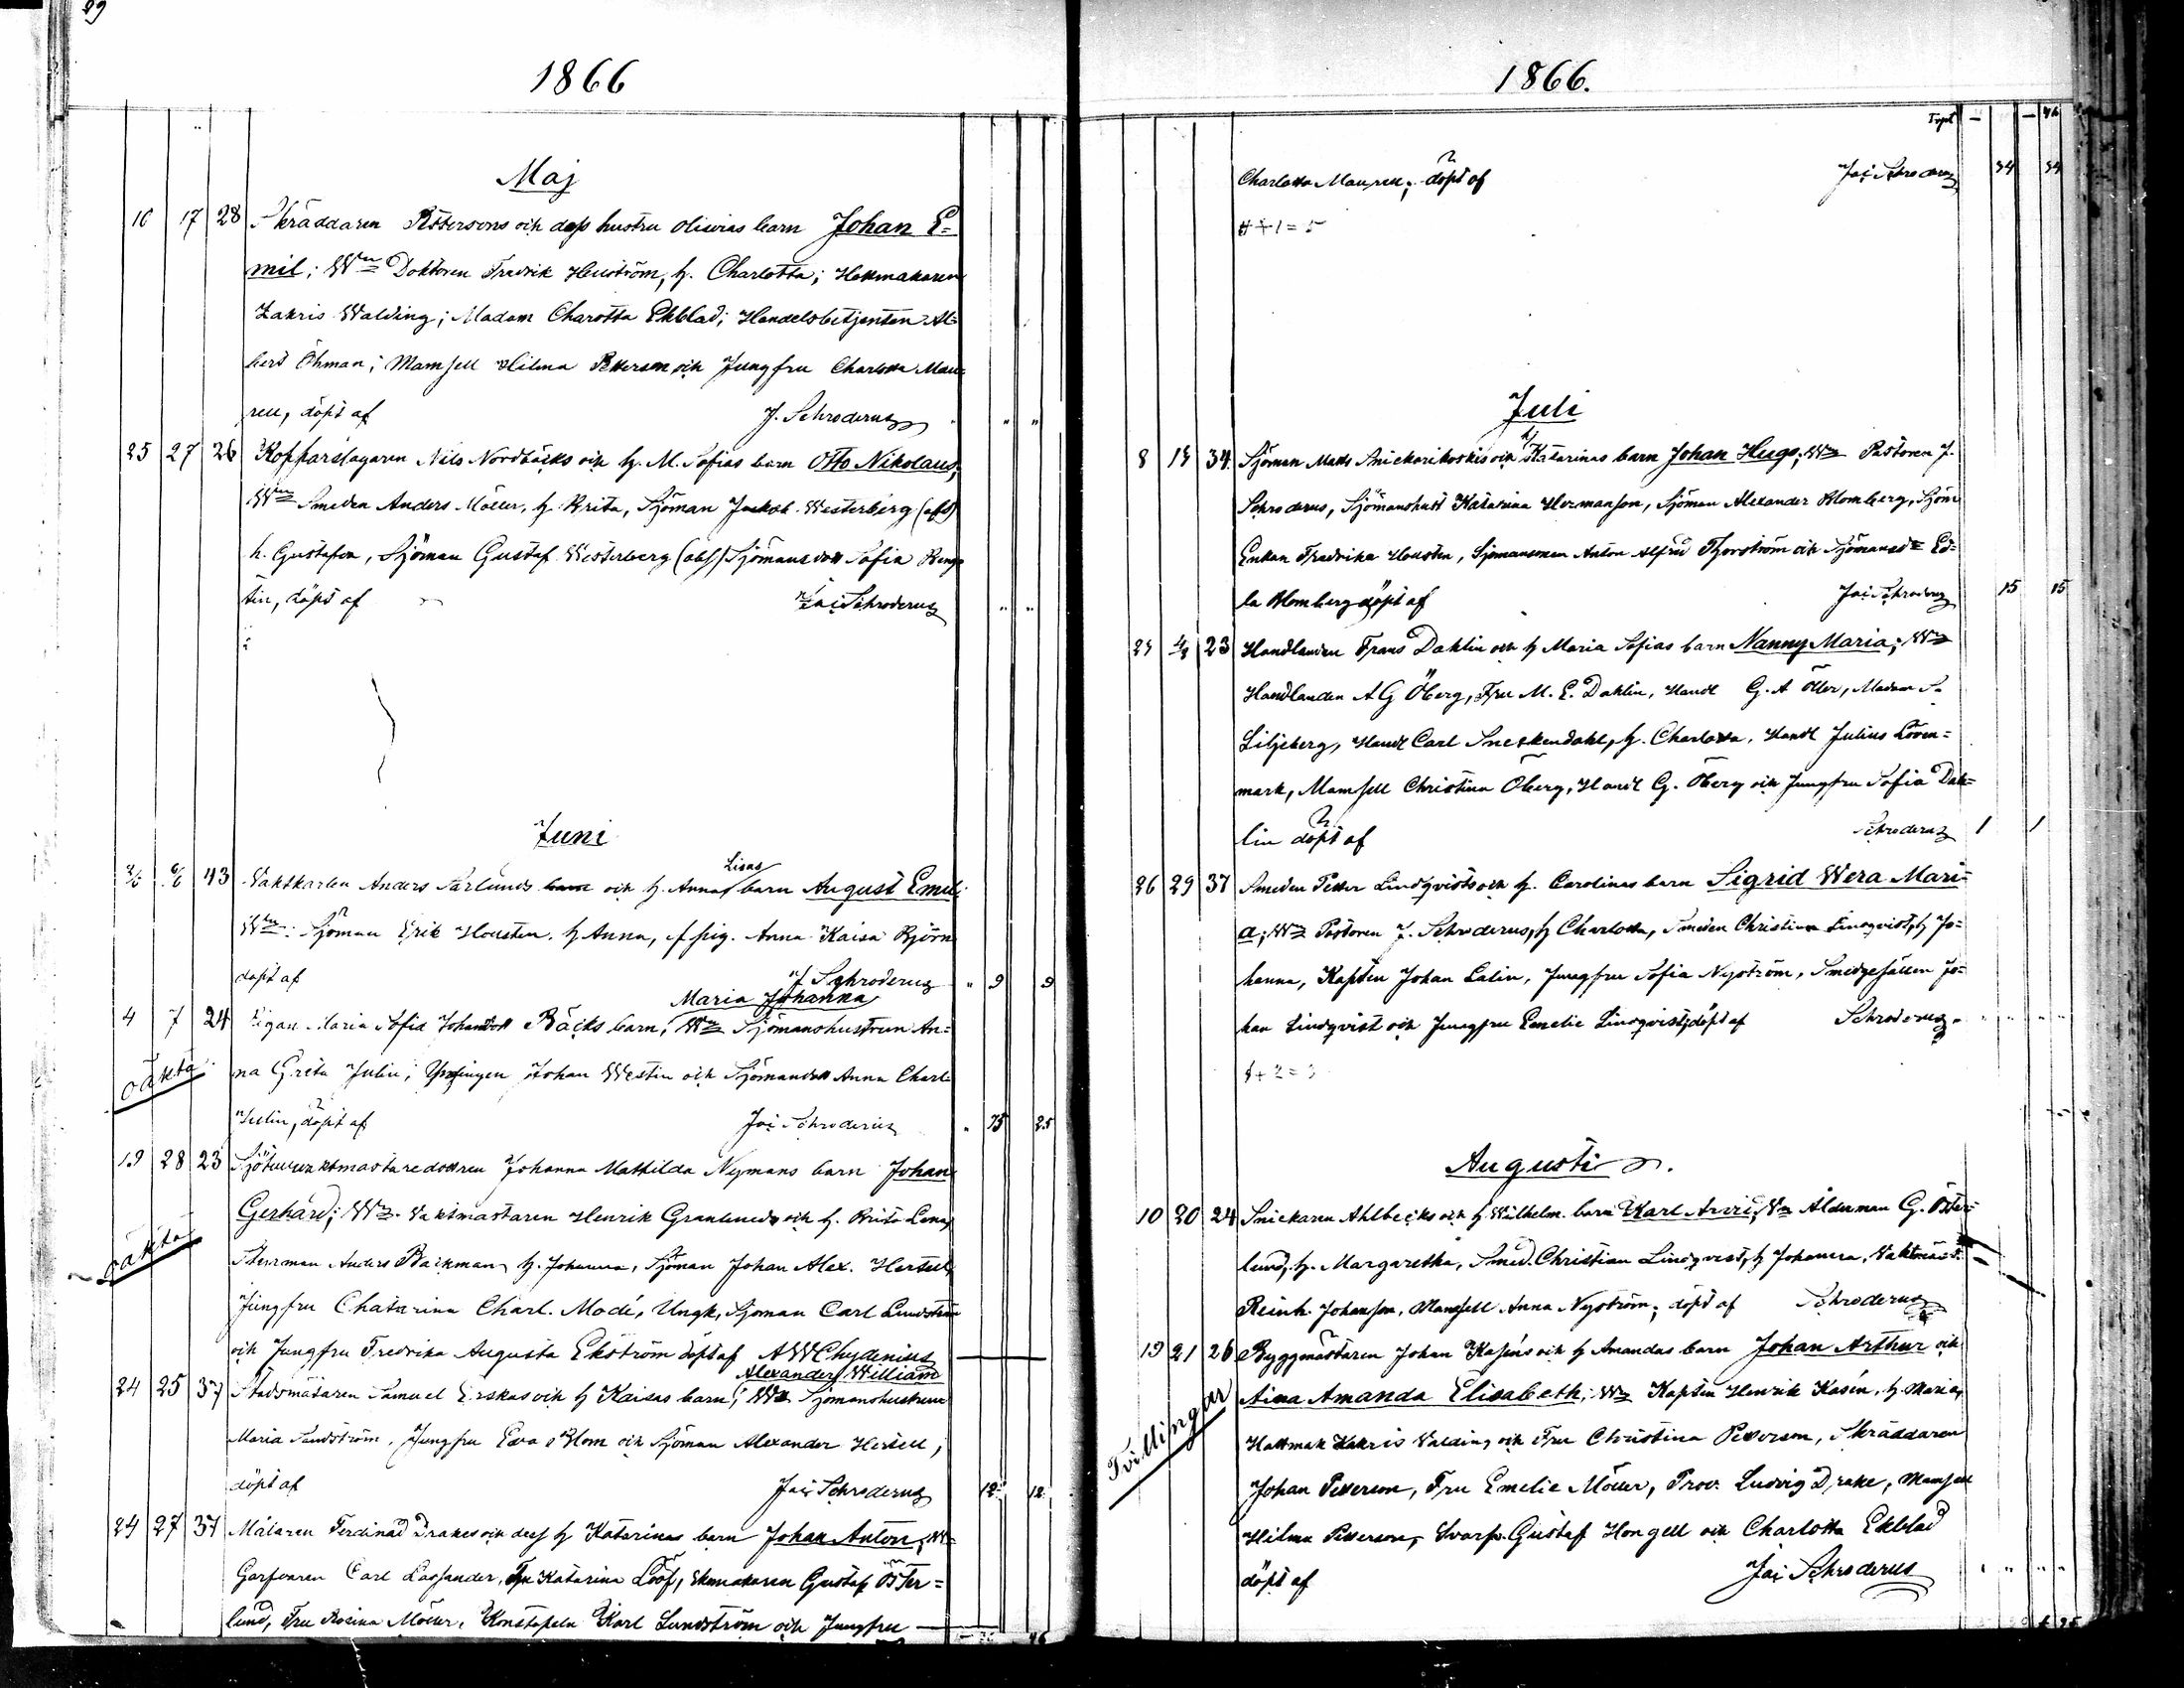 1866
Maj
10 17 28 Skräddaren Pettersons och dess hustru Oliwias barn Johan E=
mil; Wn Doktoren Fredrik Heuström, h. Charlotta; Hattmakaren
Zakris Walding; Madam Charotta Ekblad; Handelsbetjenten Al=
bert Öhman; Mamsell Hilma Petterson och Jungfru Charlotta Mau=
rell, döpt af J. Schroderus
25 27 26 Kopparslagaren Nils Nordbäcks och h. M. Sofias barn Otto Nikolaus;
Wn Smeden Anders Möller, h. Brita, Sjöman Jakob Westerberg (abs)
h. Gustafva, Sjöman Gustaf Westerberg (abs) Sjömansdott Sofia Beng=
tin, döpt af Jac Schroderus
Juni
43 Vaktkarlen Anders Sarlunds barn och h. Anna Lisas barn August Emil;
Wn: Sjöman Erik Housten, h Anna, pig. Anna Kaisa Björn
döpt af J Schroderus 9 9
4 7 24 Pigan Maria Sofia Johansdott Bäcks barn, Maria Johanna Wn Sjömanshustrun An=
oäkta
na Greta Julin; Ynglingen Johan Westin och Sjömansdott Anna Charl.
Julin, döpt af Jac Schroderus 25
19 28 23 Johanna Mathilda Nymans barn Johan
oäkta
Gerhard; Wn. Vaktmästaren Henrik Granlund och h. Brita Lena,
Styrman Anders Backman, h. Johanna, Sjöman Johan Alex. Hertell,
Jungfru Chatarina Charl. Modé, Ungk, Sjöman Carl Lundström
och Jungfru Fredrika Augusta Ekström döpt af AWChydenius
24 25 37 Stadsmätaren Samuel Erskas och h Kaisas barn; Alexander William Wn Sjömanshustrun
Maria Sandström, Jungfru Eva Blom och Sjöman Alexander Hertell;
döpt af Jac Schroderus 12 12
24 27 37 Målaren Ferdinad Drakes och dess h Katarinas barn Johan Anton; Wn
Garfvaren Carl Lagsander, Fru Katarina Lööf, Gustaf Öster=
lund, Fru Rosina Möller, Konstapeln Karl Lundström och Jungfru
1866.
Trpt
Charlotta Maurell; döpt af Jac Schroderus 34 34
4+1=5
Juli
8 15 34 Sjöman Matts och h Katarinas barn Johan Hugo; Wn Pastoren J.
Schroderus, Sjömanshust Katarina Hermanson, Sjöman Alexander Blomberg, Sjöm
Enkan Fredrika Housten, Sjömanssonen Anton Alfred Thorström och Sjömansd Ed=
la Blomberg döpt af Jac Schroderus 15 15
23 Handlanden Frans Dahlin och h Maria Sofias barn Nanny Maria; Wn
Handlanden A G Öberg, Fru M. E. Dahlin, Handl G. A Öller, Madam S.
Liljeberg, Handl Carl Sneckendahl, h. Charlotta, Handl Julius Löven=
mark, Mamsell Christina Öberg, Handl G. Öberg och Jungfru Sofia Dah=
lin döpt af Schroderus 1 1
26 29 37 Smeden Petter Lindqvists och h. Carolinas barn Sigrid Wera Mari=
a; Wn Pastoren J. Schroderus, h Charlotta, Smeden Christian Lindqvist, h Jo=
hanna, Kapten Johan Lalin, Jungfru Sofia Nyström, Smedgesällen Jo=
han Lindqvist och Jungfru Emelie Lindqvist; döpt af Schroderus
Augusti
10 20 24 Snickaren Ahlbecks och h Wilhelm. barn Karl Arvid; Wn Ålderman G. Öster=
lund, h. Margaretha, Smed. Christian Lindqvist, h Johanna, Vaktmäst.
Reinh. Johanson, Mamsell Anna Nyström; döpt af Schroderus
19 21 26 Byggmästaren Johan Kaséns och h Amandas barn Johan Arthur och
Tvillingar
Aina Amanda Elisabeth; Wn Kapten Henrik Kasén, h. Maria,
Hattmak Zakris Valding och Fru Christina Petterson, Skräddaren
Johan Petterson, Fru Emelie Möller, Prov. Ludvig Drake, Mamsell
Hilma Petterson, Svarfv. Gustaf Hongell och Charlotta Ekblad
döpt af Jac Schroderus